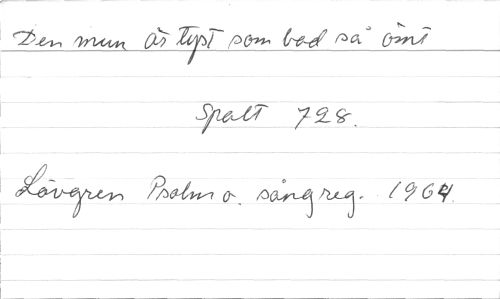 Den mun är tyst som bad så ömt
Spalt 728.
Lövgren Psalm o. sångreg. 1964.